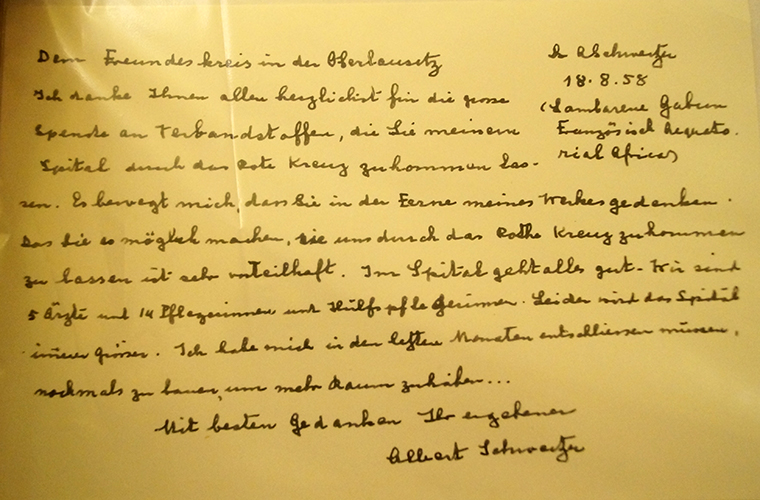 Dem Freundeskreis in der Oberlausitz
Dr ASchweitzer
18.8.58
(Lambarene Gabun
Französisch Aequato.
rial Africa)
Ich danke Ihnen allen herzlichst für die grosse
Spende an Verbandstoffen, die Sie meinem
Spital durch das Rote Kreuz zukommen las-
sen. Es bewegt mich, dass Sie in der Ferne meines Werkes gedenken.
Das Sie es möglich machen, sie uns durch das Rothe Kreuz zukommen
zu lassen ist sehr vorteilhaft. Im Spital geht alles gut. Wir sind
5 Ärzte und 14 Pflegerinnen und Hülfspflegerinnen. Leider wird das Spital
immer grösser. Ich habe mich in den letzten Monaten entschliessen müssen,
nochmals zu bauen, um mehr Raum zu haben...
Mit besten Gedanken Ihr ergebener
Albert Schweitzer